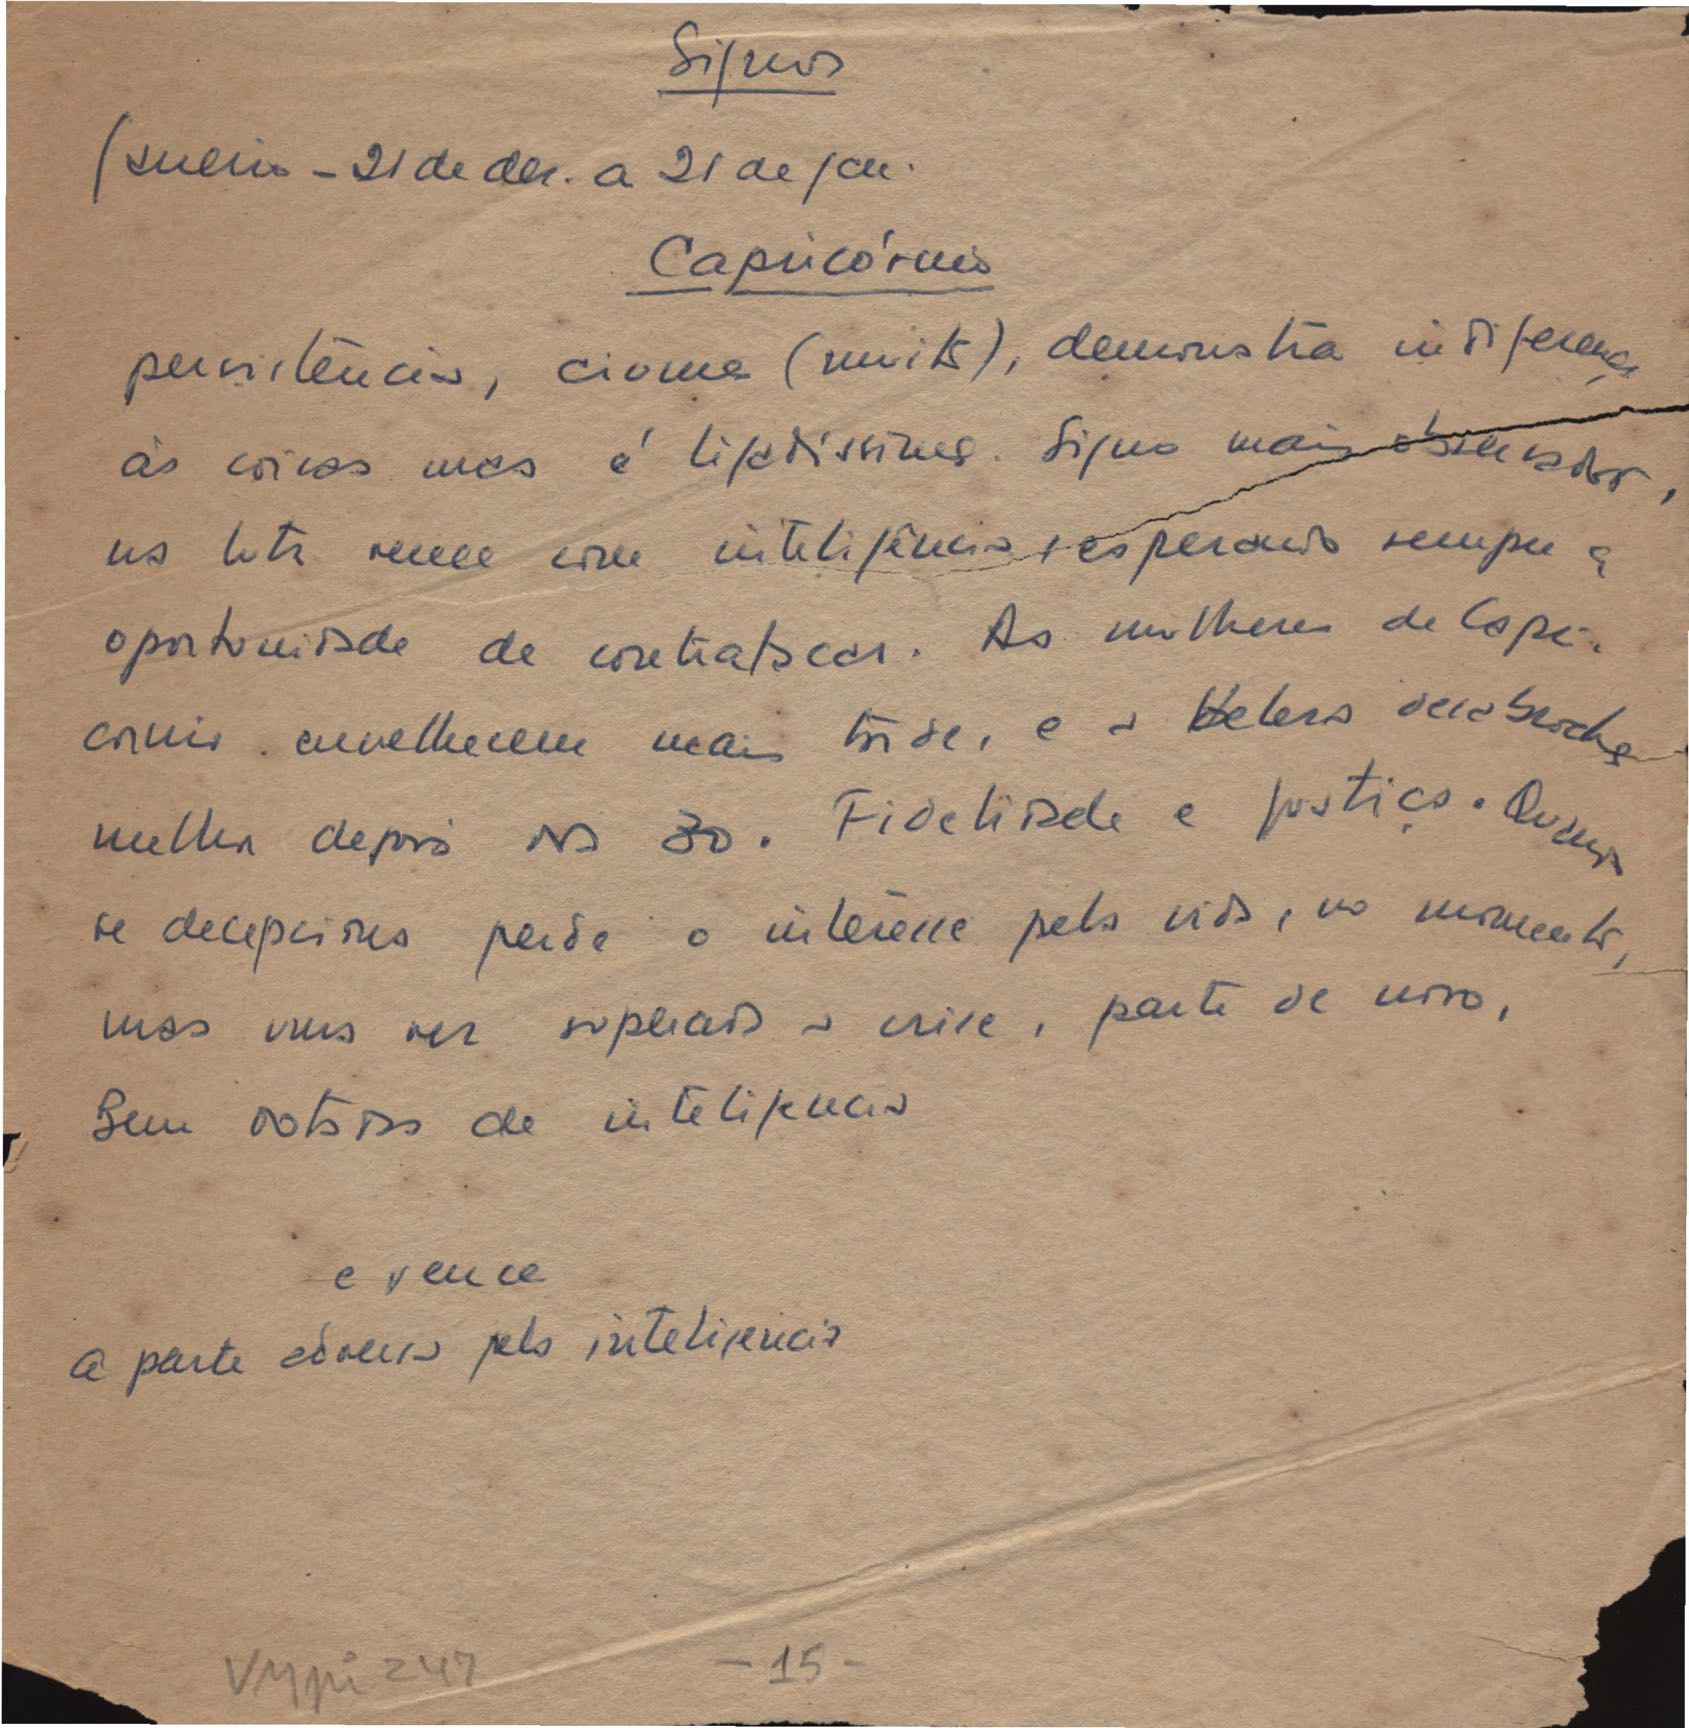 Signos
(
- 21 de dez. a 21 de jan.
Capricórnio
persistência, ciume (muito), demonstra indiferença
às coisas mas é ligadíssima. Signo mais observador,
na luta vence com inteligência, esperando sempre a
oportunidade de contratacar. As mulheres de Capri-
cornio envelhecem mais tarde, e a beleza desabrocha
melhor depois dos 30. Fidelidade e justiça. Quando
se decepciona perde o interêsse pela vida, no momento,
mas uma vez superada a crise, parte de novo.
Bem dotadas de inteligencia
e vence
a parte adversa pela inteligencia
Vypi 247
- 15 -